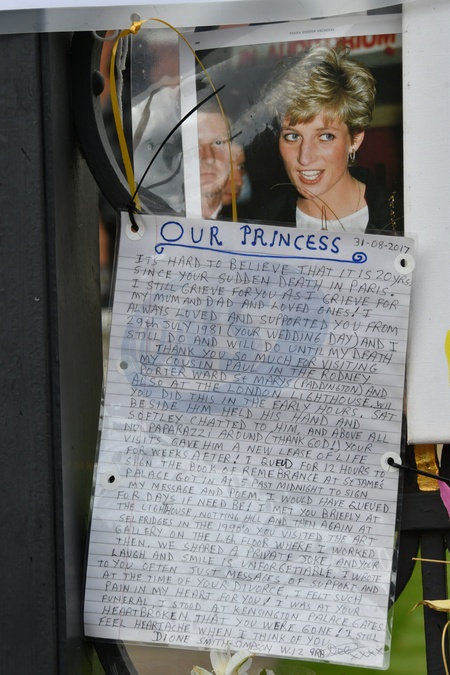 AUDITORIUM
OUR PRINCESS
31-08-2017
IT'S HARD TO BELIEVE THAT IT IS 20 YRS
SINCE YOUR SUDDEN DEATH IN PARIS.
I STILL GRIEVE FOR YOU AS I GRIEVE FOR
MY MUM AND DAD AND LOVED ONES! I
ALWAYS LOVED AND SUPPORTED YOU FROM
29th JULY 1981 (YOUR WEDDING DAY) AND I
STILL DO AND WILL DO UNTIL MY DEATH
I THANK YOU SO MUCH FOR VISITING
MY COUSIN PAUL IN THE RODNEY
PORTER WARD St MARYS (PADDINGTON) AND
ALSO AT THE LONDON LIGHTHOUSE. W11
YOU DID THIS IN THE EARLY HOURS. SAT
BESIDE HIM HELD HIS HAND AND
SOFTLEY CHATTED TO HIM, AND ABOVE ALL
NO PAPARAZZI AROUND (THANK GOD!) YOUR
VISITS GAVE HIM A NEW LEASE OF LIFE
FOR WEEKS AFTER! I QUEUD FOR 12 HOURS TO
SIGN THE BOOK OF REMEMBRANCE AT St JAMES
PALACE GOT IN AT 5 PAST MIDNIGHT TO SIGN
MY MESSAGE AND POEM I WOULD HAVE QUEUED
FOR DAYS IF NEED BE! I MET YOU BRIEFLY AT
THE LIGHTHOUSE, NOTTING HILL AND THEN AGAIN AT
SELFRIDGES IN THE 1990s YOU VISITED THE ART
GALLERY ON THE 4th FLOOR WHERE I WORKED
THEN. WE SHARED A PRIVATE JOKE AND YOUR
LAUGH AND SMILE IS UNFORGETTABLE. I WROTE
TO YOU OFTEN JUST MESSAGES OF SUPPORT AND
AT THE TIME OF YOUR DIVORCE. I FELT SUCH
PAIN IN MY HEART FOR YOU. I WAS AT YOUR
FUNERAL, I STOOD AT KENSINGTON PALACE GATES
HEARTBROKEN THAT YOU WERE GONE! I STILL
FEEL HEARTACHE WHEN I THINK OF YOU
DIONE SMITH-SIMPSON W12